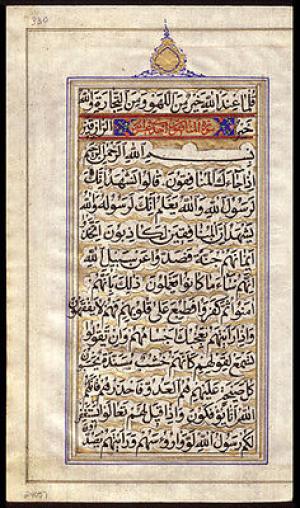 330
قل ما عند الله خير من اللهو ومن التجارة والله
خير سورة المنافقون الرازقين
بسم الله الرحمن الرحيم
اذا جاءك المنافقون قالوا نشهد انك
لرسول الله والله يعلم انك لرسوله والله
يشهد ان المنافقين لكاذبون اتخذوا
ايمانهم جنة فصدوا عن سبيل الله
انهم ساء ما كانوا يعملون ذلك بانهم
امنوا ثم كفروا فطبع على قلوبهم فهم لا يفقهون
واذا رايتهم تعجبك اجسامهم وان يقولوا
تسمع لقولهم كانهم خشب مسندة يحسبون
كل صيحة عليهم هم العدو فاحذرهم قاتلهم
الله انى يؤفكون واذا قيل لهم تعالوا يستغفر
لكم رسول الله لووا رؤسهم ورايتهم يصدون